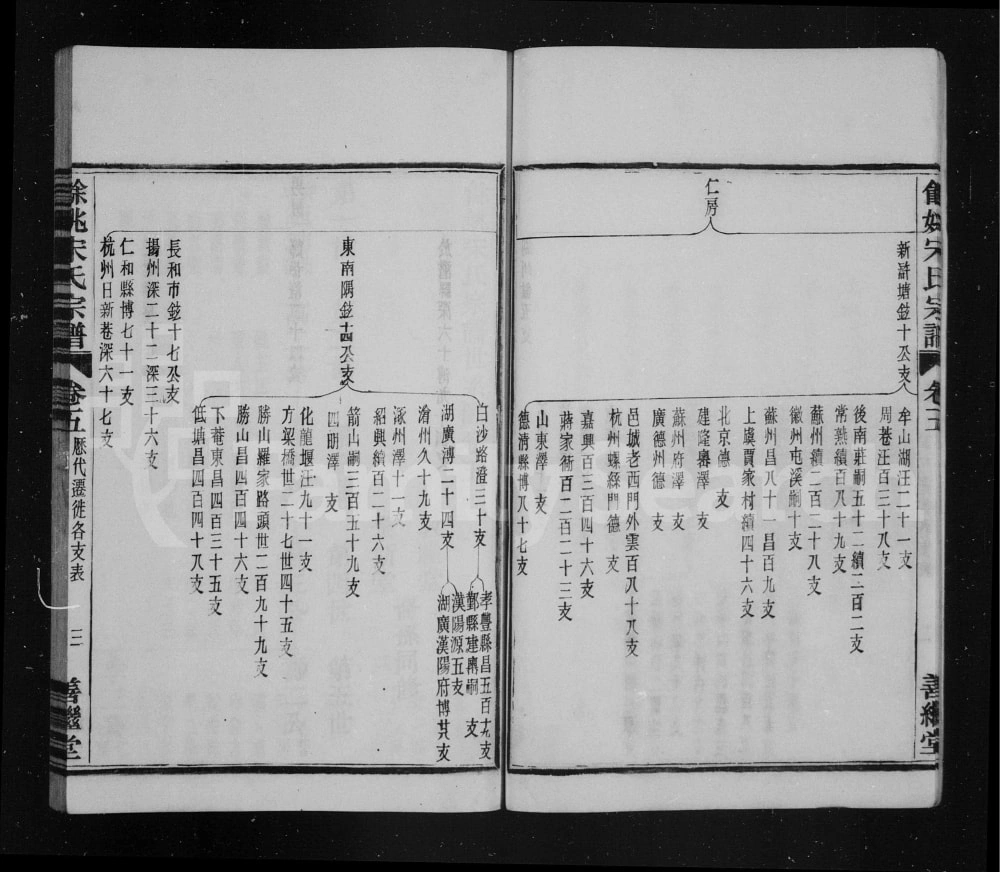 餘姚宋氏宗譜
卷五
善繼堂
仁房
新滸塘鉉十公支
牟山湖汪二十一支
周巷汪百三十八支
後南莊嗣五十二續二百二支
常熟續百八十九支
蘇州續二百二十八支
徽州屯溪嗣十支
蘇州昌八十一昌百九支
上虞賈家村續四十六支
北京德 支
建隆 澤 支
蘇州府澤 支
廣德州德 支
邑城老西門外雲百八十八支
杭州螺絲門德 支
嘉興百三百四十六支
蔣家衕百二百二十三支
山東澤 支
德清縣博八十七支
東南隅鉉十四公支
白沙路澄三十支
孝豐縣昌五百十九支
鄞縣建興嗣 支
湖廣溥二十四支
漢陽源五支
湖廣漢陽府博其支
濳州久十九支
涿州澤十一支
紹興續百二十六支
箭山嗣三百五十九支
四明澤 支
化龍堰汪九十一支
方梁橋世二十七世四十五支
勝山羅家路頭世二百九十九支
勝山昌四百四十六支
下菴東昌四百三十五支
低塘昌四百四十八支
長和市鉉十七公支
揚州深二十二深三十六支
仁和縣博七十一支
杭州日新巷深六十七支
餘姚宋氏宗譜
卷五
歷代遷徙各支表
三
善繼堂